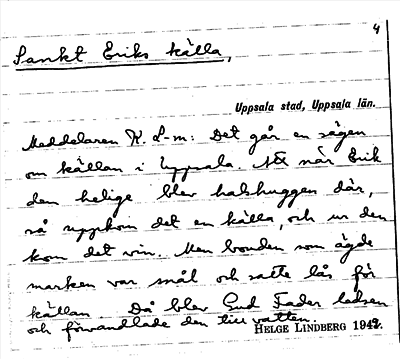 4
Sankt Eriks källa,
Uppsala stad, Uppsala län.
Meddelaren K. L-m: Det går en sägen
om källan i Uppsala. När Erik
den helige blev halshuggen där,
så uppkom det en källa, och ur den
kom det vin. Men bonden som ägde
marken var snål och satte lås för
källan. Då blev Gud Fader ledsen
och förvandlade den till vatten.
HELGE LINDBERG 1942.